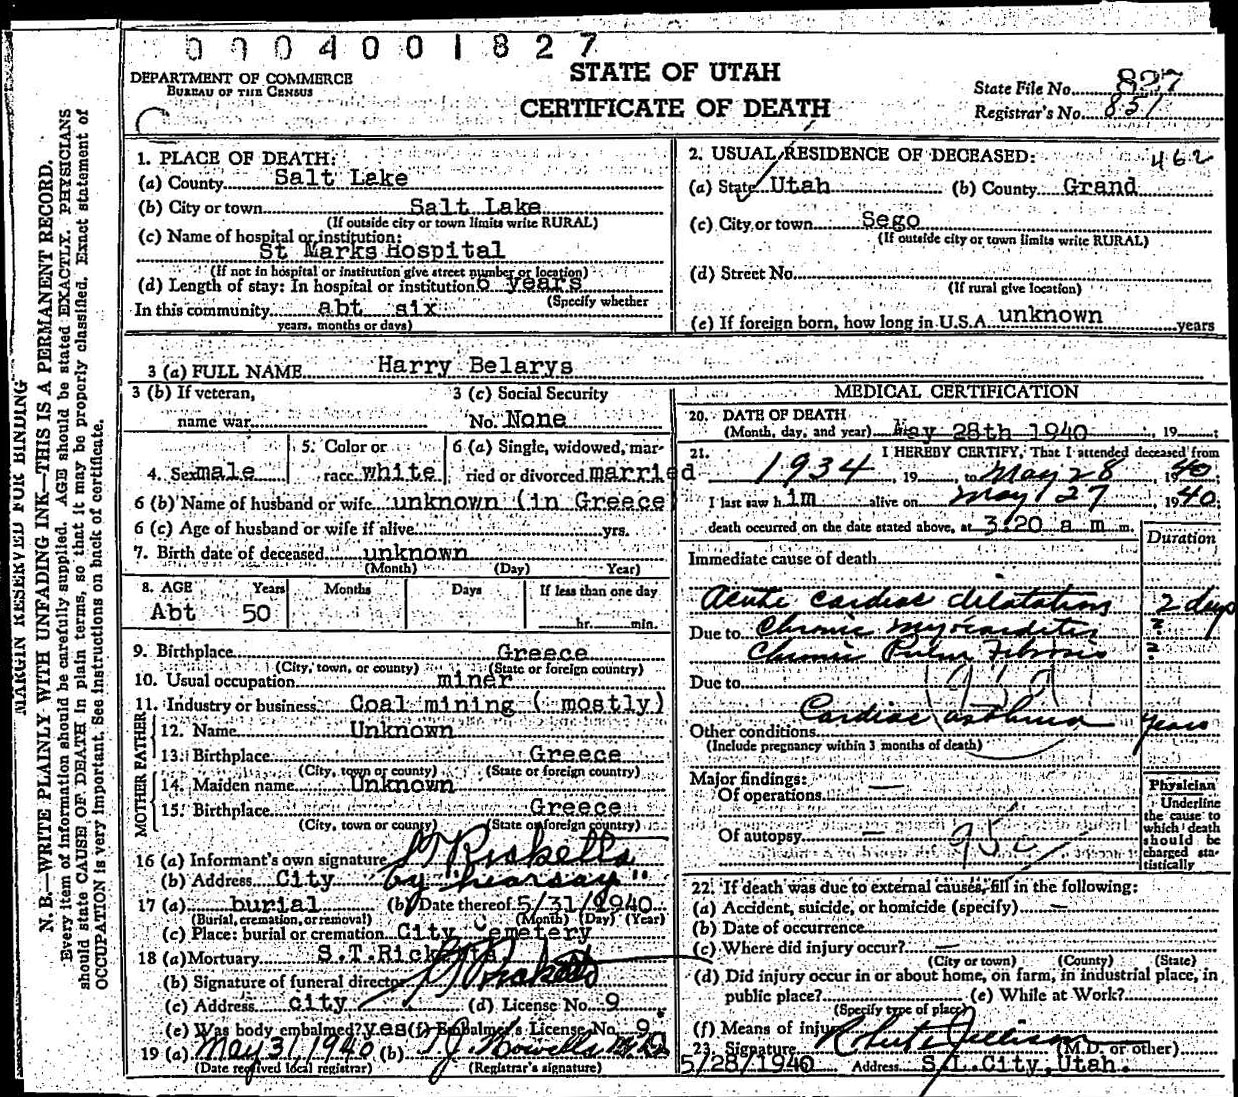 0004001827
DEPARTMENT OF COMMERCE
BUREAU OF THE CENSUS
STATE OF UTAH
CERTIFICATE OF DEATH
State File No. 827
Registrar's No. 851
1. PLACE OF DEATH:
(a) County Salt Lake
(b) City or town Salt Lake
(If outside city or town limits write RURAL)
(c) Name of hospital or institution:
St Marks Hospital
(If not in hospital or institution give street number or location)
(d) Length of stay: In hospital or institution 6 years
(Specify whether
In this community abt six
years, months or days)
2. USUAL RESIDENCE OF DECEASED: 462
(a) State Utah (b) County Grand
(c) City or town Sego
(If outside city or town limits write RURAL)
(d) Street No.
(If rural give location)
(e) If foreign born, how long in U.S.A. unknown years
3 (a) FULL NAME Harry Belarys
3 (b) If veteran,
name war
3 (c) Social Security
No. None
4. Sex male
5. Color or
race white
6 (a) Single, widowed, mar-
ried or divorced married
6 (b) Name of husband or wife unknown (in Greece
6 (c) Age of husband or wife if alive yrs.
7. Birth date of deceased unknown
(Month) (Day) Year)
8. AGE Years Months Days If less than one day
Abt 50 hr. min.
9. Birthplace Greece
(City, town, or county) (State or foreign country)
10. Usual occupation miner
11. Industry or business Coal mining ( mostly)
FATHER
12. Name Unknown
13. Birthplace Greece
(City, town or county) (State or foreign country)
MOTHER
14. Maiden name Unknown
15. Birthplace Greece
(City, town or county) (State or foreign country)
16 (a) Informant's own signature Ricketts
(b) Address City by "hearsay"
17 (a) burial (b) Date thereof 5/31/1940
(Burial, cremation, or removal) (Month) (Day) (Year)
(c) Place: burial or cremation City Cemetery
18 (a) Mortuary S.T.Ricketts
(b) Signature of funeral director Ricketts
(c) Address city (d) License No. 9
(e) Was body embalmed? yes (f) Embalmer's License No. 9
19 (a) May 31, 1940 (b) T.J. Howells
(Date received local registrar) (Registrar's signature)
MEDICAL CERTIFICATION
20. DATE OF DEATH
(Month, day, and year) May 28th 1940, 19 ;
21. I HEREBY CERTIFY, That I attended deceased from
1934, 19 , to May 28, 1940
I last saw h im alive on May 27, 1940
death occurred on the date stated above, at 3.20 a m m.
Duration
Immediate cause of death
Acute cardiac dilatation 2 days
Due to Chronic myocarditis ?
Chronic Pulm Fibrosis ?
Due to
Cardiac asthma years
Other conditions
(Include pregnancy within 3 months of death)
Major findings:
Of operations —
Of autopsy — 95c
Physician
Underline
the cause to
which death
should be
charged sta-
tistically
22. If death was due to external causes, fill in the following:
(a) Accident, suicide, or homicide (specify) —
(b) Date of occurrence
(c) Where did injury occur? —
(City or town) (County) (State)
(d) Did injury occur in or about home, on farm, in industrial place, in
public place? (e) While at Work?
(Specify type of place)
(f) Means of injury
23. Signature Robert
(M.D. or other)
5/28/1940 Address S.L.City,Utah.
MARGIN RESERVED FOR BINDING
N. B.—WRITE PLAINLY WITH UNFADING INK—THIS IS A PERMANENT RECORD.
Every item of information should be carefully supplied. AGE should be stated EXACTLY. PHYSICIANS
should state CAUSE OF DEATH in plain terms, so that it may be properly classified. Exact statement of
OCCUPATION is very important. See instructions on back of certificate.